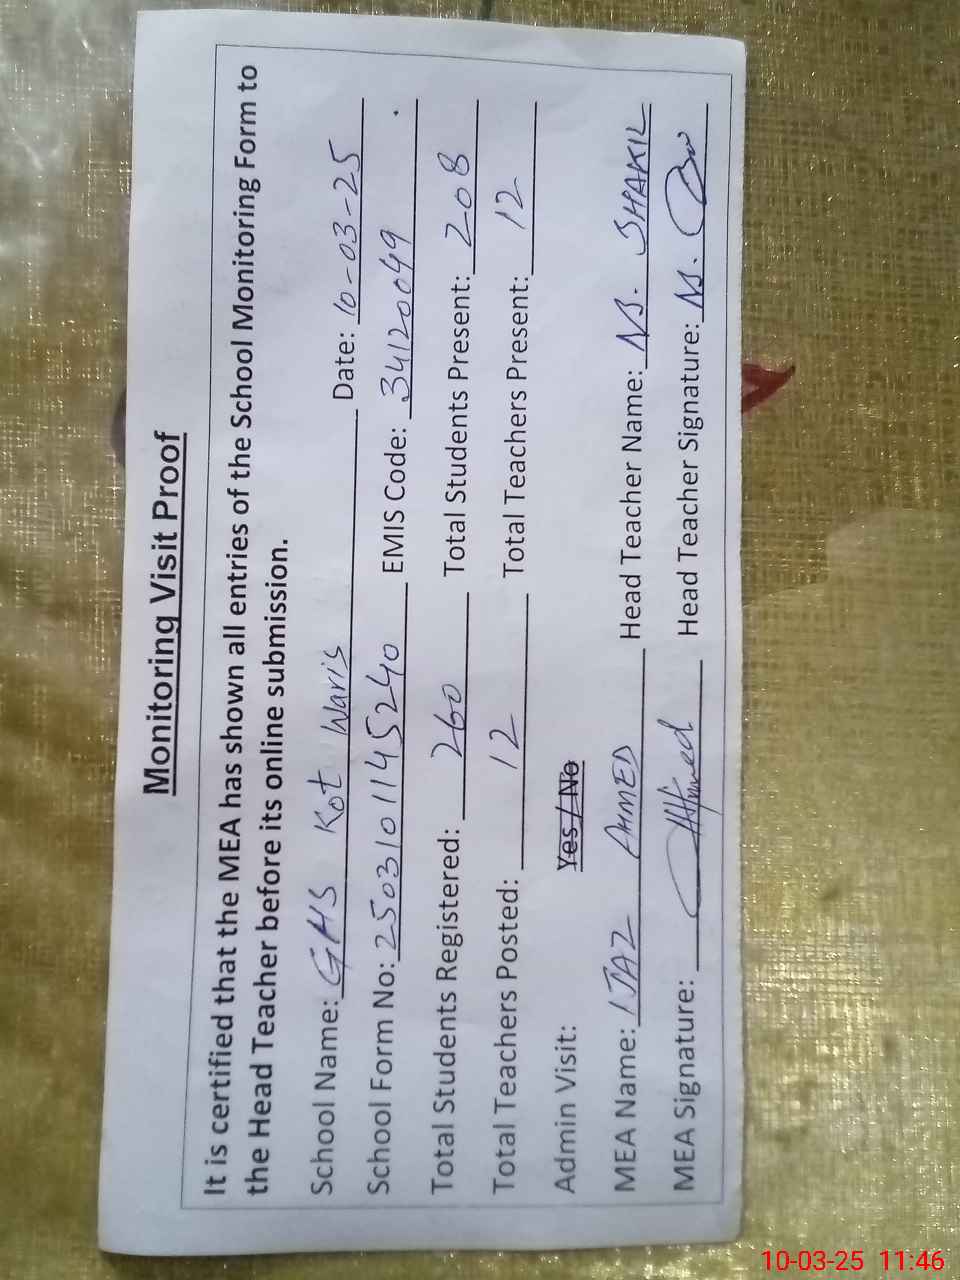 Monitoring Visit Proof
It is certified that the MEA has shown all entries of the School Monitoring Form to
the Head Teacher before its online submission.
School Name: GHS Kot Waris Date: 10-03-25
School Form No: 2503101145240 EMIS Code: 34120049
Total Students Registered: 260 Total Students Present: 208
Total Teachers Posted: 12 Total Teachers Present: 12
Admin Visit: Yes / No
MEA Name: IJAZ AHMED Head Teacher Name: NB. SHAKIL
MEA Signature: Ahmed Head Teacher Signature:
10-03-25 11:46